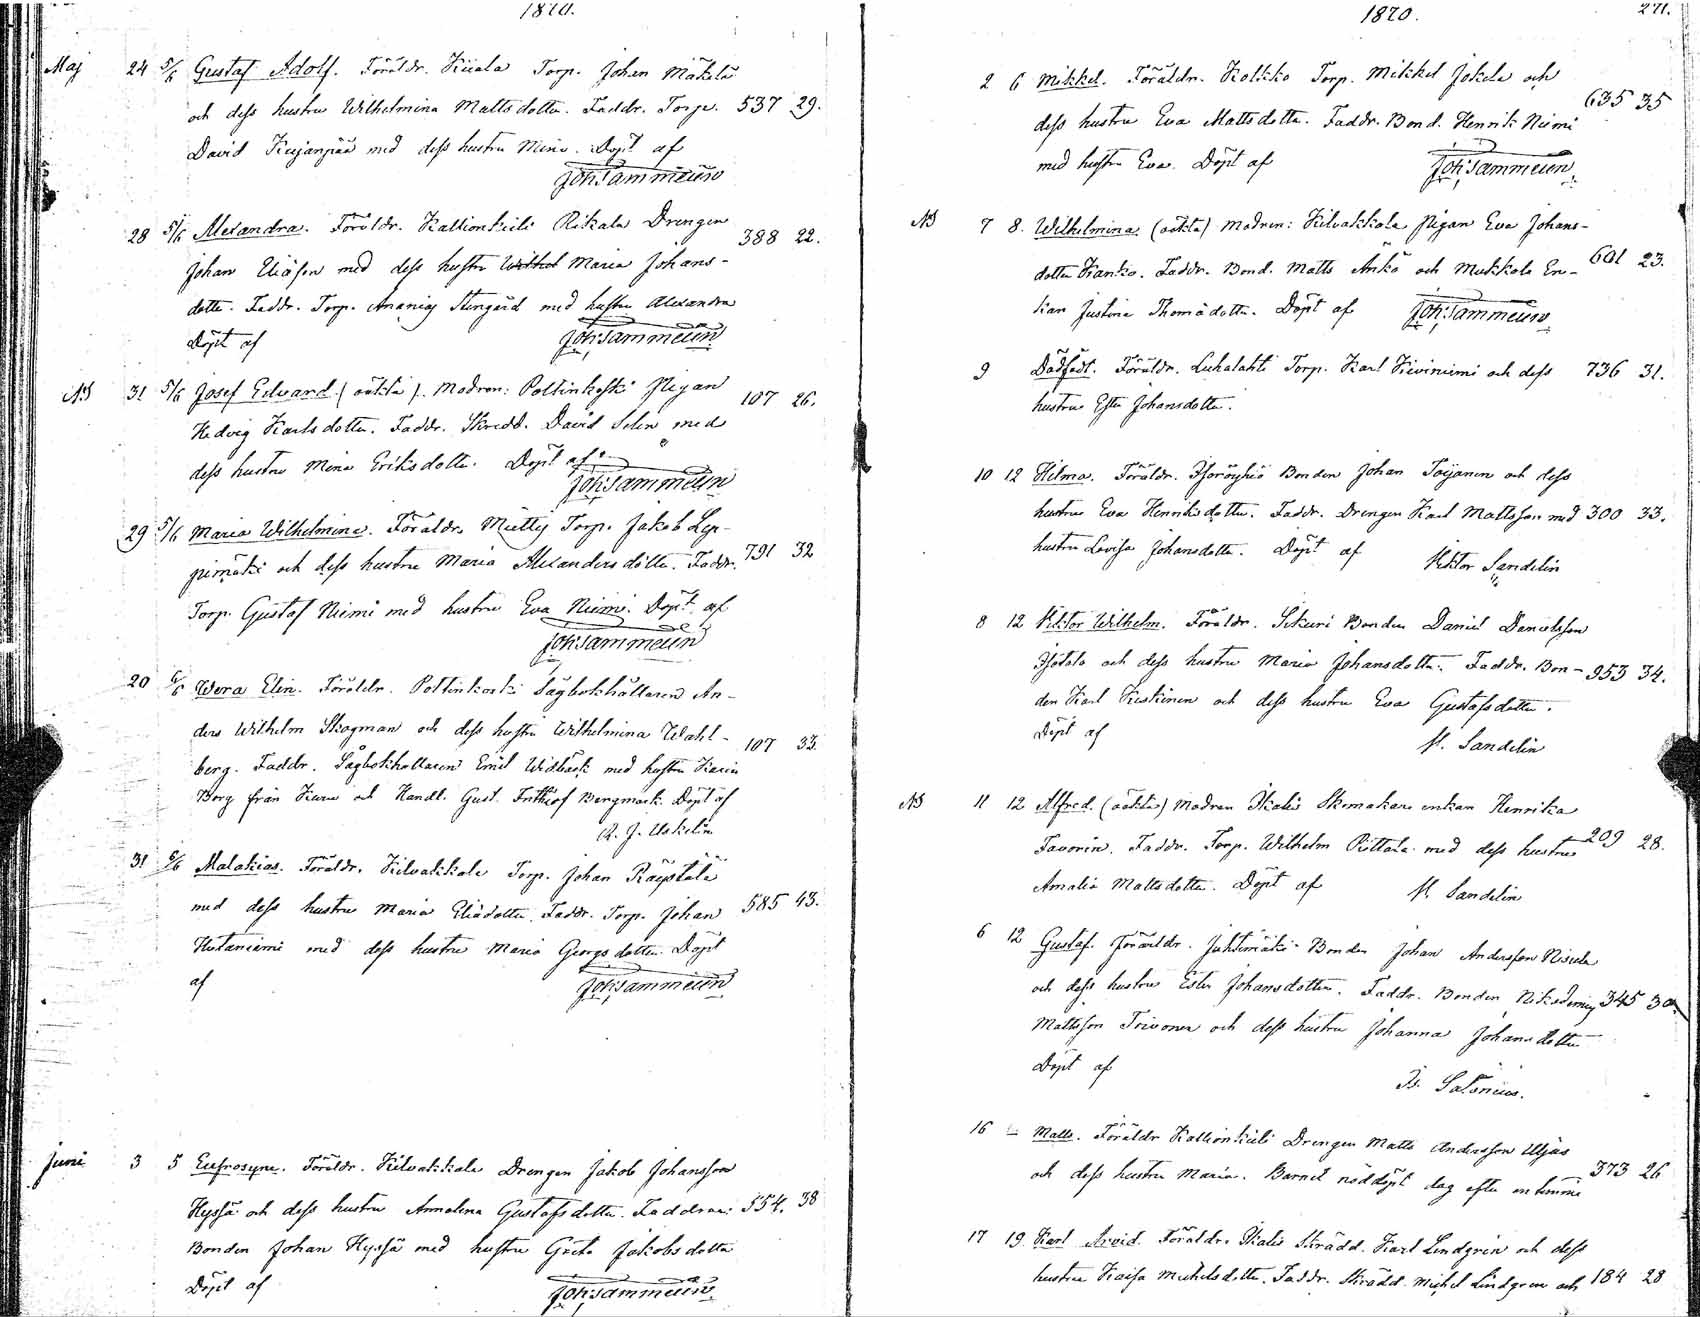 1870.
Maj 24 5/6 Gustaf Adolf. Föräldr. Torp. Johan Mäkelä
och dess hustru Wilhelmina Mattsdotter. Faddr. Torp. 537 29.
David Kujanpää med dess hustru Mina. Döpt af
Joh: Sammelin
28 5/6 Alexandra. Föräldr. Kallionkieli Rikala Drengen 388 22.
Johan Eliasson med dess hustru Maria Johans-
dotter. Faddr. Torp. Ananias med hustru Alexandra
Döpt af
Joh: Sammelin
31 5/6 Josef Edvard (oäkta). Modren: Poltinkoski Pigan 107 26.
Hedvig Karlsdotter. Faddr. Skredd. David Selin med
dess hustru Mina Eriksdotter. Döpt af
Joh: Sammelin
29 5/6 Maria Wilhelmina. Föräldr. Mietty Torp. Jakob Lep-
pimäki och dess hustru Maria Alexandersdotter. Faddr. 791 32
Torp. Gustaf Niemi med hustru Eva Niemi. Döpt af
Joh: Sammelin
20 6/6 Wera Elin. Föräldr. Poltinkoski Sågbokhållaren An-
ders Wilhelm Skogman och dess hustru Wilhelmina Wahl-
berg. Faddr. Sågbokhållaren Emil Widbäck med hustru Karin 107 33.
Borg från och Handl. Gust. Frithiof Bergmark. Döpt af
31 6/6 Malakias. Föräldr. Kilvakkala Torp. Johan Räystälä
med dess hustru Maria Eliædotter. Faddr. Torp. Johan 585 43.
Hietaniemi med dess hustru Maria Georgsdotter. Döpt
af
Joh: Sammelin
Juni 3 5 Eufrosyne. Föräldr. Kilvakkala Drengen Jakob Johansson
Hyssä och dess hustru Annalena Gustafsdotter. Faddrar: 554. 38
Bonden Johan Hyssä med hustru Greta Jakobsdotter
Döpt af
Joh: Sammelin
1870. 271.
2 6 Mikkel. Föräldr. Kolkko Torp. Mikkel Jokela och 635 35
dess hustru Eva Mattsdotter. Faddr. Bond. Henrik Niemi
med hustru Eva. Döpt af
Joh: Sammelin
7 8. Wilhelmina (oäkta) Modren: Kilvakkala Pigan Eva Johans-
dotter Kanko. Faddr. Bond. Matts Ankö och Mukkala En- 601 23.
kan Justina Thomædotter. Döpt af Joh: Sammelin
9 Dödfödt. Föräldr. Luhalahti Torp. Karl Kiviniemi och dess 736 31.
hustru Ester Johansdotter.
10 12 Hilma. Föräldr. Isoröyhiö Bonden Johan Toijanen och dess
hustru Eva Henriksdotter. Faddr. Drengen Karl Mattsson med 300 33.
hustru Lovisa Johansdotter. Döpt af
Viktor Sandelin
8 12 Viktor Wilhelm. Föräldr. Sikuri Bonden Daniel Danielsson
Isotalo och dess hustru Maria Johansdotter. Faddr. Bon- 953 34.
den Karl Keskinen och dess hustru Eva Gustafsdotter.
Döpt af
V. Sandelin
11 12 Alfred. (oäkta) Modren Ikalis Skomakare enkan Henrika
Favorin. Faddr. Torp. Wilhelm Rottala med dess hustru 209 28.
Amalia Mattsdotter. Döpt af V. Sandelin
6 12 Gustaf. Föräldr. Juhtimäki Bonden Johan Andersson Nisula
och dess hustru Ester Johansdotter. Faddr. Bonden Nikodemus 345 30
Mattsson Toivonen och dess hustru Johanna Johansdotter
Döpt af
Is. Salonius.
16 Matts. Föräldr. Kallionkieli Drengen Matts Andersson Uljas
och dess hustru Maria. Barnet nöddöpt dog efter en timme 373 26
17 19 Karl Arvid. Föräldr. Ikalis Skrädd. Karl Lindgrén och dess
hustru Kaisa Michelsdotter. Faddr. Skrädd. Michel Lindgren och 184 28